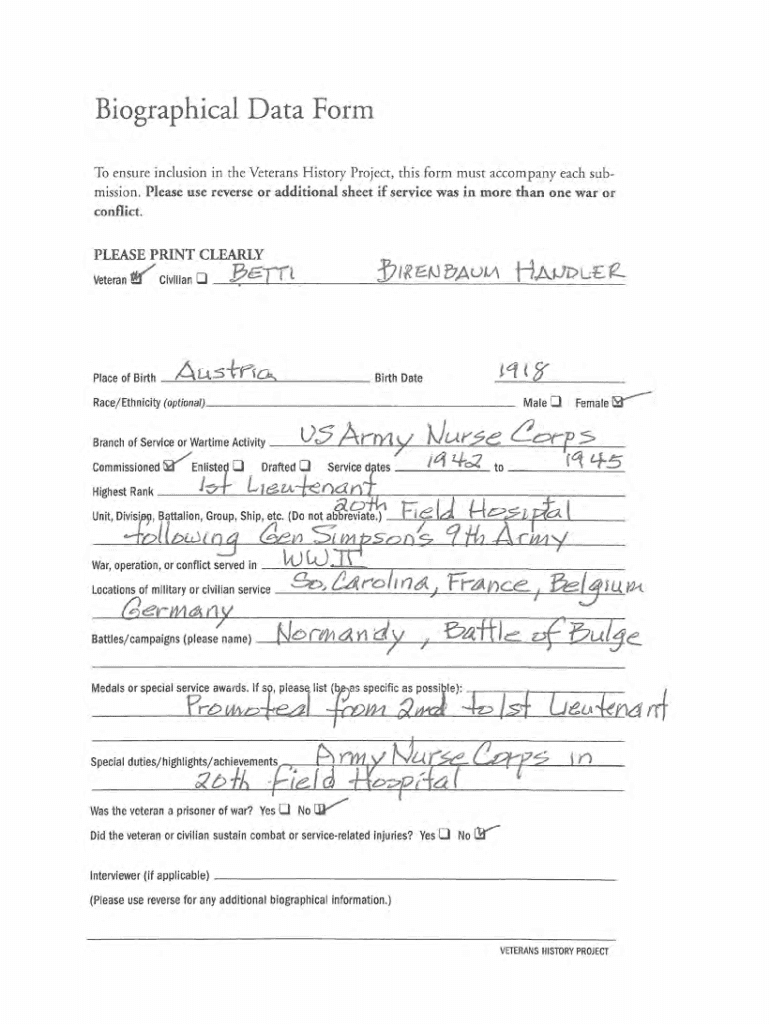 Biographical Data Form
To ensure inclusion in the Veterans History Project, this form must accompany each sub-
mission. Please use reverse or additional sheet if service was in more than one war or
conflict.
PLEASE PRINT CLEARLY
Veteran ☑ Civilian ☐ BETTI BIRENBAUM HANDLER
Place of Birth Austria Birth Date 1918
Race/Ethnicity (optional) Male ☐ Female ☑
Branch of Service or Wartime Activity US Army Nurse Corps
Commissioned ☑ Enlisted ☐ Drafted ☐ Service dates 1942 to 1945
Highest Rank 1st Lieutenant
Unit, Division, Battalion, Group, Ship, etc. (Do not abbreviate.) 20th Field Hospital
following Gen Simpson's 9th Army
War, operation, or conflict served in WWII
Locations of military or civilian service So. Carolina, France, Belgium
Germany
Battles/campaigns (please name) Normandy, Battle of Bulge
Medals or special service awards. If so, please list (be as specific as possible):
Promoted from 2nd to 1st Lieutenant
Special duties/highlights/achievements Army Nurse Corps in
20th Field Hospital
Was the veteran a prisoner of war? Yes ☐ No ☑
Did the veteran or civilian sustain combat or service-related injuries? Yes ☐ No ☑
Interviewer (if applicable)
(Please use reverse for any additional biographical information.)
VETERANS HISTORY PROJECT